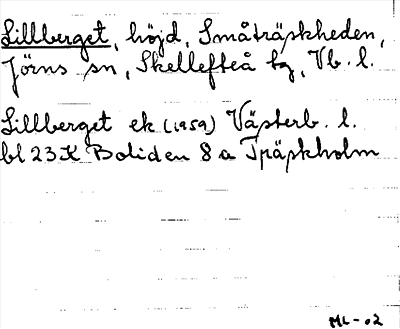 Lillberget, höjd, Småträskheden,
Jörns sn, Skellefteå tg, Vb. l.
Lillberget ek (1959) Västerb. l.
bl 23 K Boliden 8 a Träskholm
ML-02